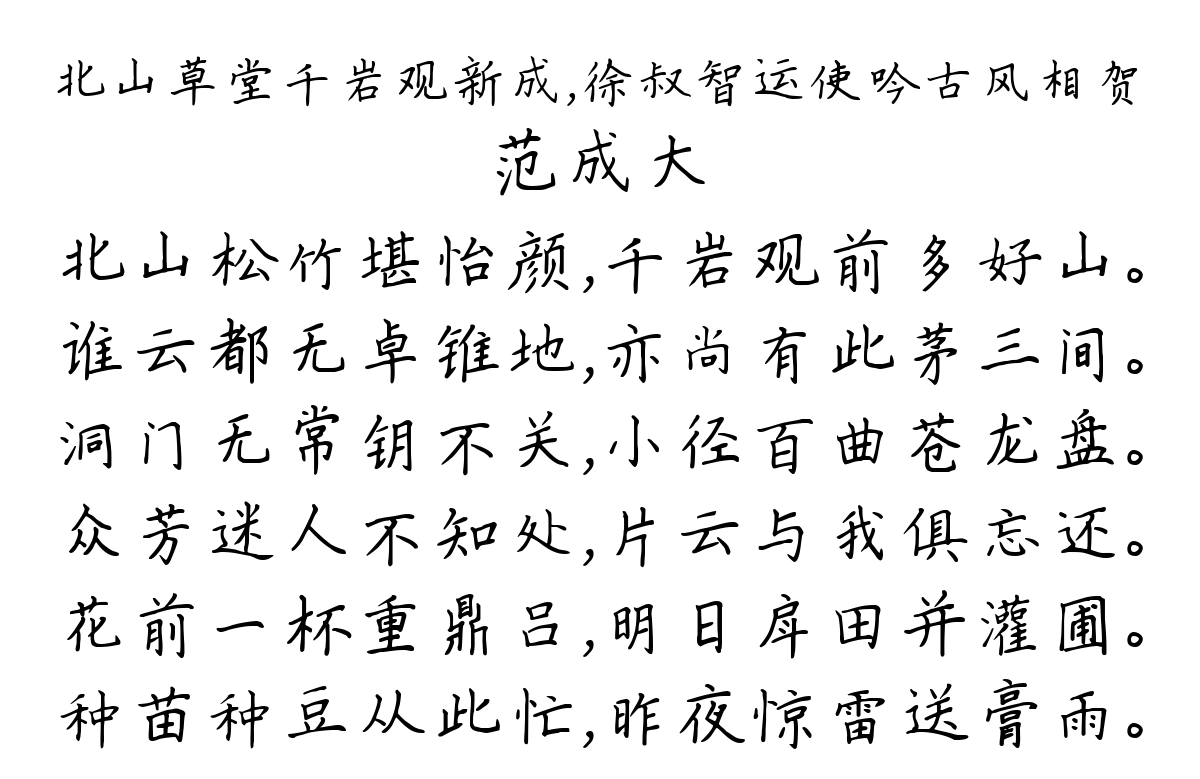 北山草堂千岩观新成,徐叔智运使吟古风相贺
范成大
北山松竹堪怡颜,千岩观前多好山。
谁云都无卓锥地,亦尚有此茅三间。
洞门无常钥不关,小径百曲苍龙盘。
众芳迷人不知处,片云与我俱忘还。
花前一杯重鼎吕,明日戽田并灌圃。
种苗种豆从此忙,昨夜惊雷送膏雨。